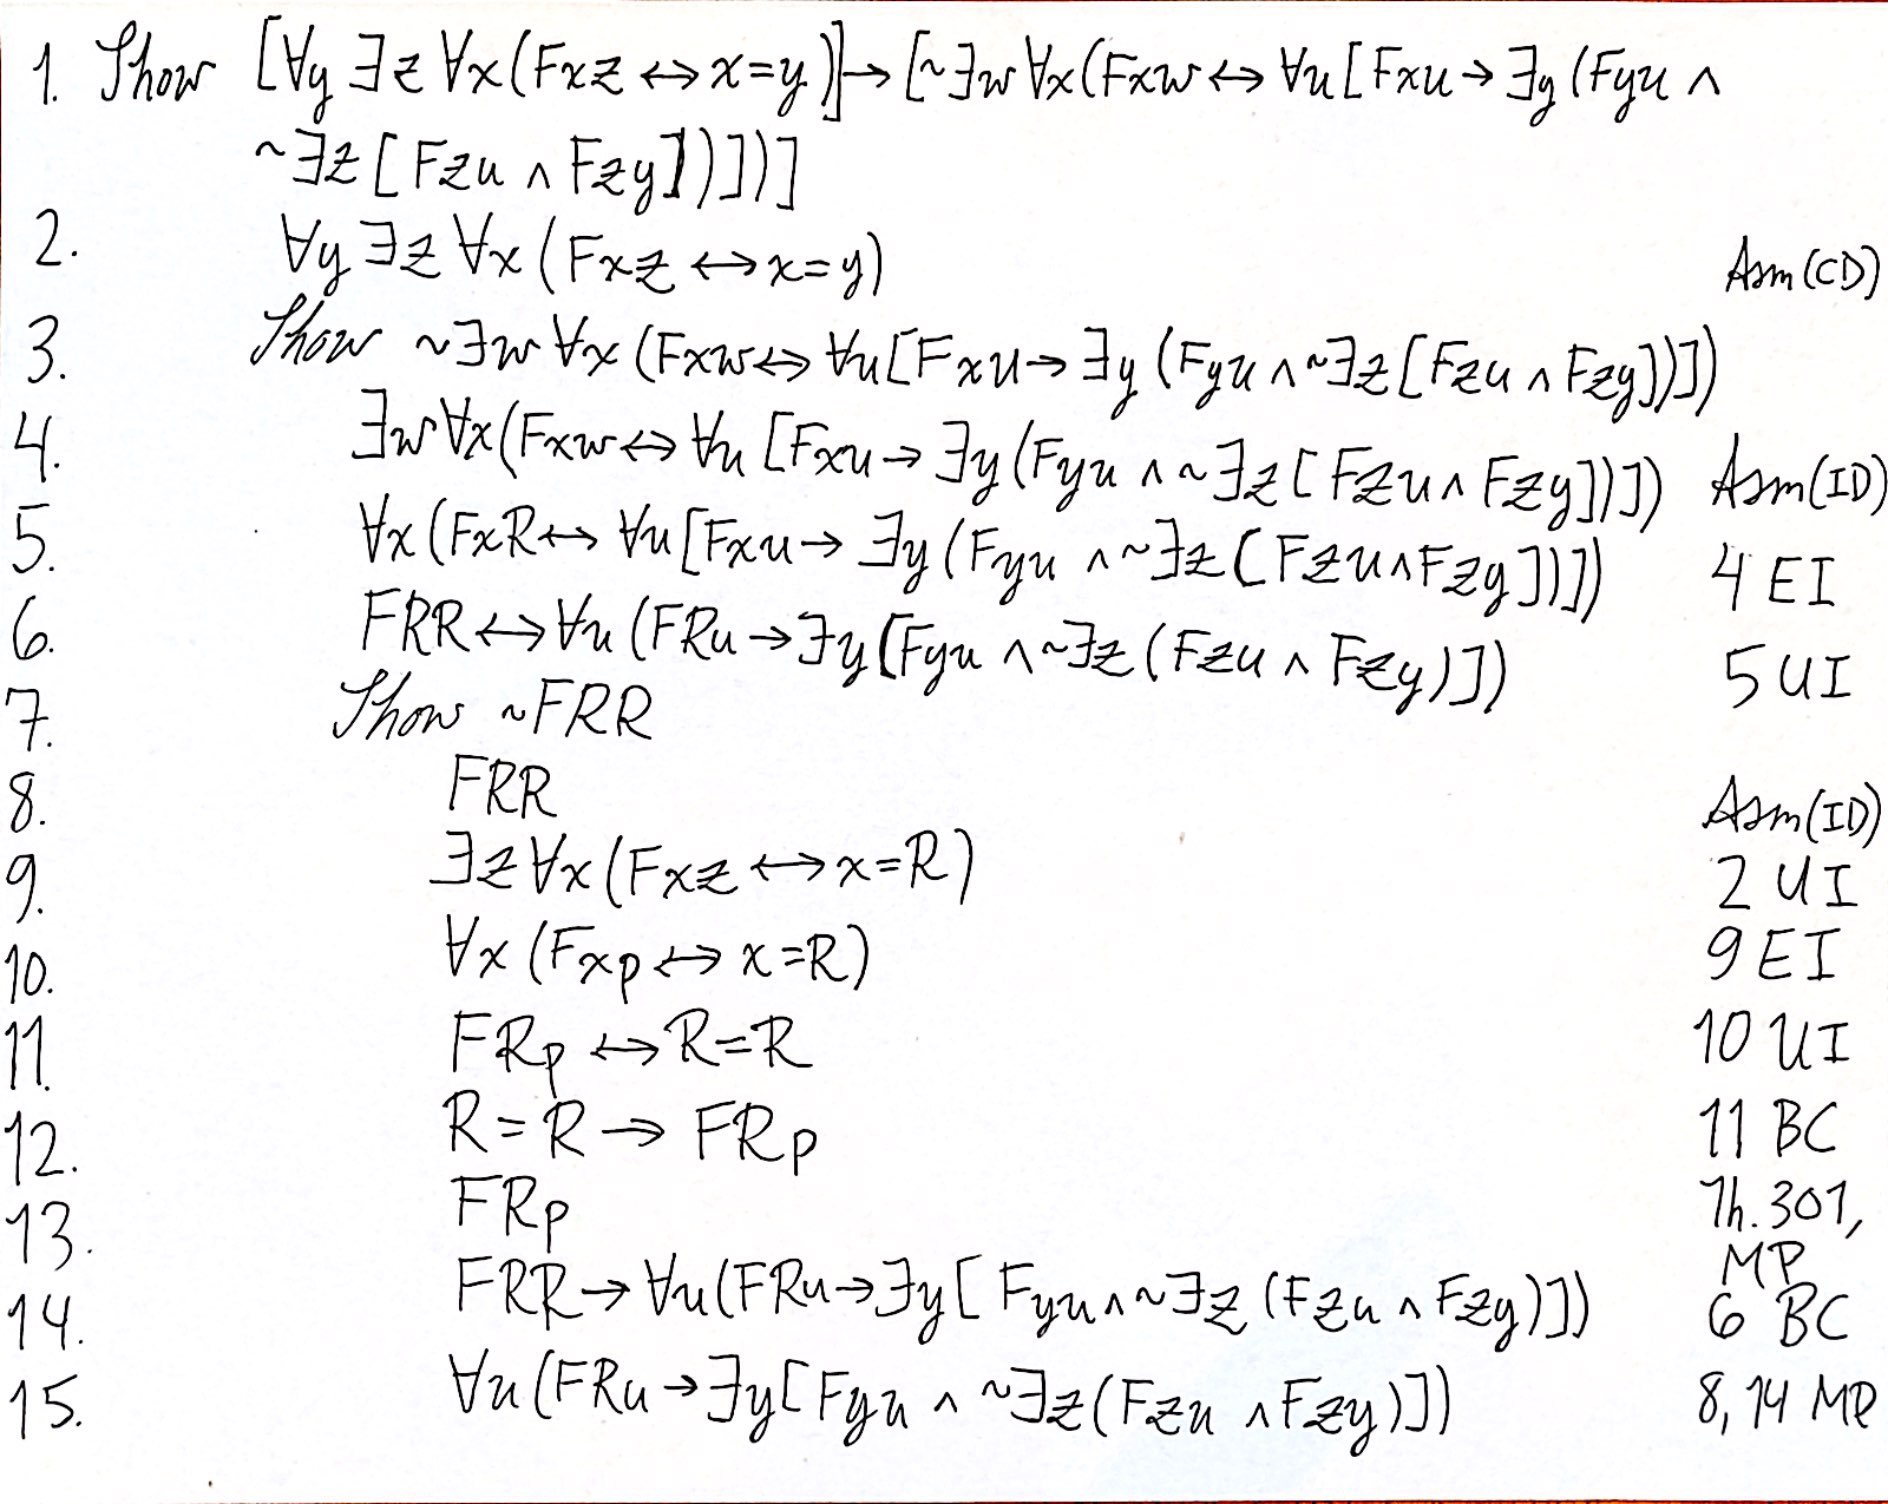 1. Show [∀y ∃z ∀x(Fxz ↔ x=y)] → [~∃w ∀x(Fxw ↔ ∀u[Fxu → ∃y(Fyu ∧
~∃z[Fzu ∧ Fzy])])]
2. ∀y ∃z ∀x(Fxz ↔ x=y) Asm(CD)
3. Show ~∃w ∀x(Fxw ↔ ∀u[Fxu → ∃y(Fyu ∧ ~∃z[Fzu ∧ Fzy])])
4. ∃w ∀x(Fxw ↔ ∀u[Fxu → ∃y(Fyu ∧ ~∃z[Fzu ∧ Fzy])]) Asm(ID)
5. ∀x(FxR ↔ ∀u[Fxu → ∃y(Fyu ∧ ~∃z[Fzu ∧ Fzy])]) 4 EI
6. FRR ↔ ∀u(FRu → ∃y[Fyu ∧ ~∃z(Fzu ∧ Fzy)]) 5 UI
7. Show ~FRR
8. FRR Asm(ID)
9. ∃z ∀x(Fxz ↔ x=R) 2 UI
10. ∀x(Fxp ↔ x=R) 9 EI
11. FRp ↔ R=R 10 UI
12. R=R → FRp 11 BC
13. FRp Th. 301,
MP
14. FRR → ∀u(FRu → ∃y[Fyu ∧ ~∃z(Fzu ∧ Fzy)]) 6 BC
15. ∀u(FRu → ∃y[Fyu ∧ ~∃z(Fzu ∧ Fzy)]) 8, 14 MP